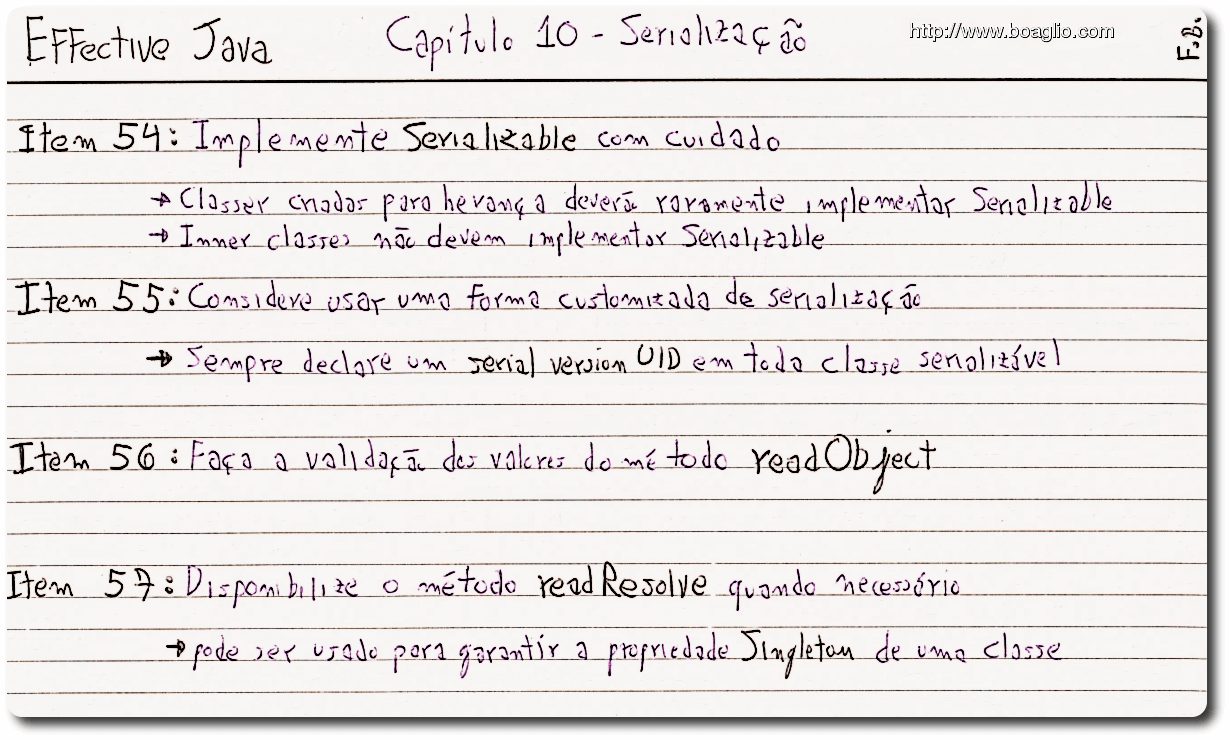 Effective Java Capítulo 10 - Serialização http://www.boaglio.com F.B.
Item 54: Implemente Serializable com cuidado
→ Classes criadas para herança deverão raramente implementar Serializable
→ Inner classes não devem implementar Serializable
Item 55: Considere usar uma forma customizada de serialização
→ Sempre declare um serial version UID em toda classe serializável
Item 56: Faça a validação dos valores do método readObject
Item 57: Disponibilize o método readResolve quando necessário
→ pode ser usado para garantir a propriedade Singleton de uma classe